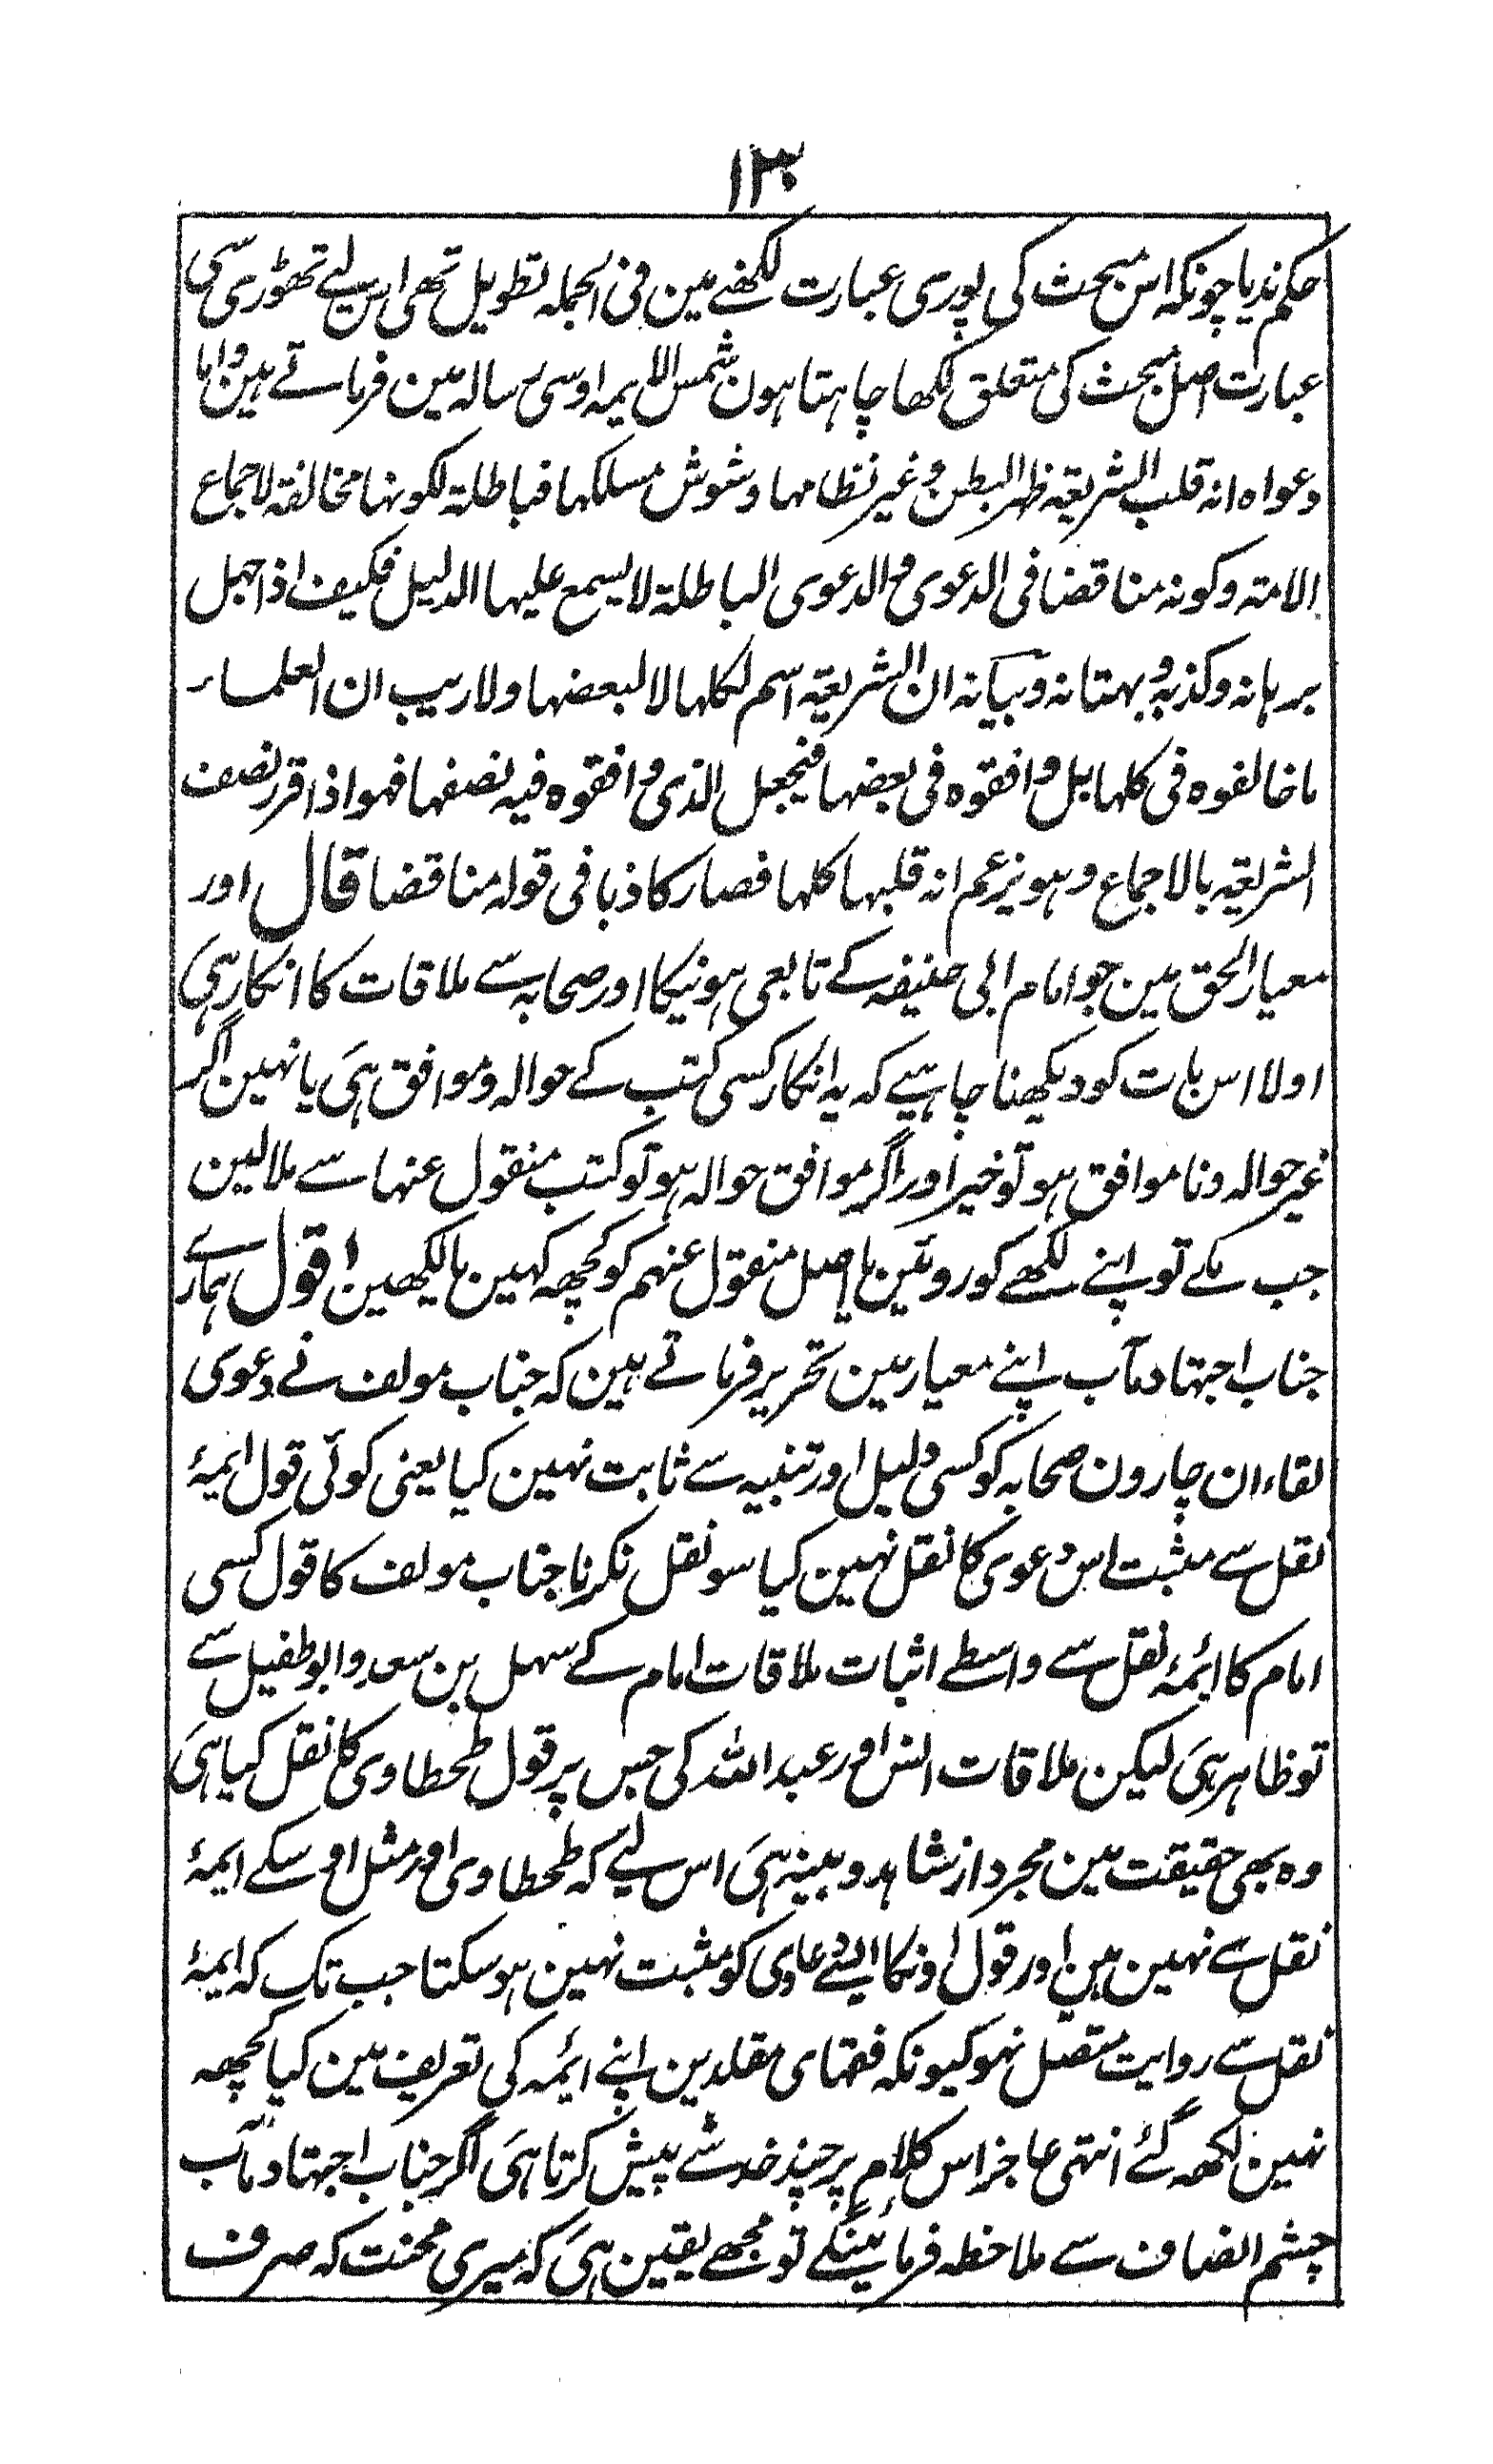 ۱۳
حکم ندیا چونکہ اس مبحث کی پوری عبارت لکھنے مین فی الجملہ تطویل تھی اس لیے تھوڑی سی
عبارت اصل مبحث کی متعلق لکھا چاہتا ہون شمس الایمہ اوسی رسالہ مین فرماتے ہین واما
دعواہ انہ قلب الشریعۃ ظہر البطن وغیر نظامہا وشوش مسلکہا فباطلۃ لکونہا مخالفۃ لاجماع
الامتہ وکونہ مناقضا فی الدعوی والدعوی الباطلۃ لا یسمع علیہا الدلیل فکیف اذا جہل
برہانہ وکذبہ وبہتانہ وبیانہ ان الشریعۃ اسم لکلہا لا لبعضہا ولا ریب ان العلماء
ماخالفوہ فی کلہا بل وافقوہ فی بعضہا فیجعل الذی وافقوہ فیہ نصفہا فہو اذا قرر نصف
الشریعۃ بالاجماع وہو یزعم انہ قلبہا کلہا فصار کاذبا فی قولہ مناقضا قال اور
معیار الحق مین جو امام ابی حنیفہ کے تابعی ہونیکا اور صحابہ سے ملاقات کا انکار ہی
اولا اس بات کو دیکھنا چاہیے کہ یہ انکار کسی کتب کے حوالہ و موافق ہی یا نہین اگر
غیر حوالہ و نا موافق ہو تو خیر اور اگر موافق حوالہ ہو تو کتب منقول عنہا سے ملا لین
جب ملے تو اپنے لکھے کو روئین یا اصل منقول عنہم کو کچھہ کہین یا لکیھین اقول ہمارے
جناب اجتہاد مآب اپنے معیار مین تحریر فرماتے ہین کہ جناب مولف نے دعوی
لقاء ان چارون صحابہ کو کسی دلیل اور تنبیہ سے ثابت نہین کیا یعنی کوئی قول ایمۂ
نقل سے مثبت اس دعوی کا نقل نہین کیا سو نقل نکرنا جناب مولف کا قول کسی
امام کا ایمۂ نقل سے واسطے اثبات ملاقات امام کے سہل بن سعد و ابو طفیل سے
تو ظاہر ہی لیکن ملاقات انس اور عبد اللہ کی جس پر قول طحطاوی کا نقل کیا ہی
وہ بھی حقیقت مین مجرد از شاہد و بینہ ہی اس لیے کہ طحطاوی اور مثل اوسکے ایمۂ
نقل سے نہین ہین اور قول اونکا ایسے دعاوی کو مثبت نہین ہو سکتا جب تک کہ ایمۂ
نقل سے روایت متصل نہو کیونکہ فقہای مقلدین اپنے ائمہ کی تعریف مین کیا کچھہ
نہین لکھہ گئے انتہی عاجز اس کلام پر چند خدشے پیش کرتا ہی اگر جناب اجتہاد مآب
چشم انصاف سے ملاحظہ فرمائینگے تو مجھے یقین ہی کہ میری محنت کہ صرف